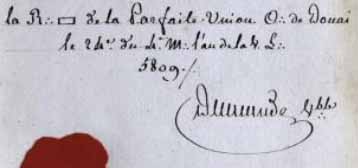 la R∴ ▭ de la Parfaite Union O∴ de Douai
le 24e. du 4e. M∴ l'an de la V∴ L∴
5809./.